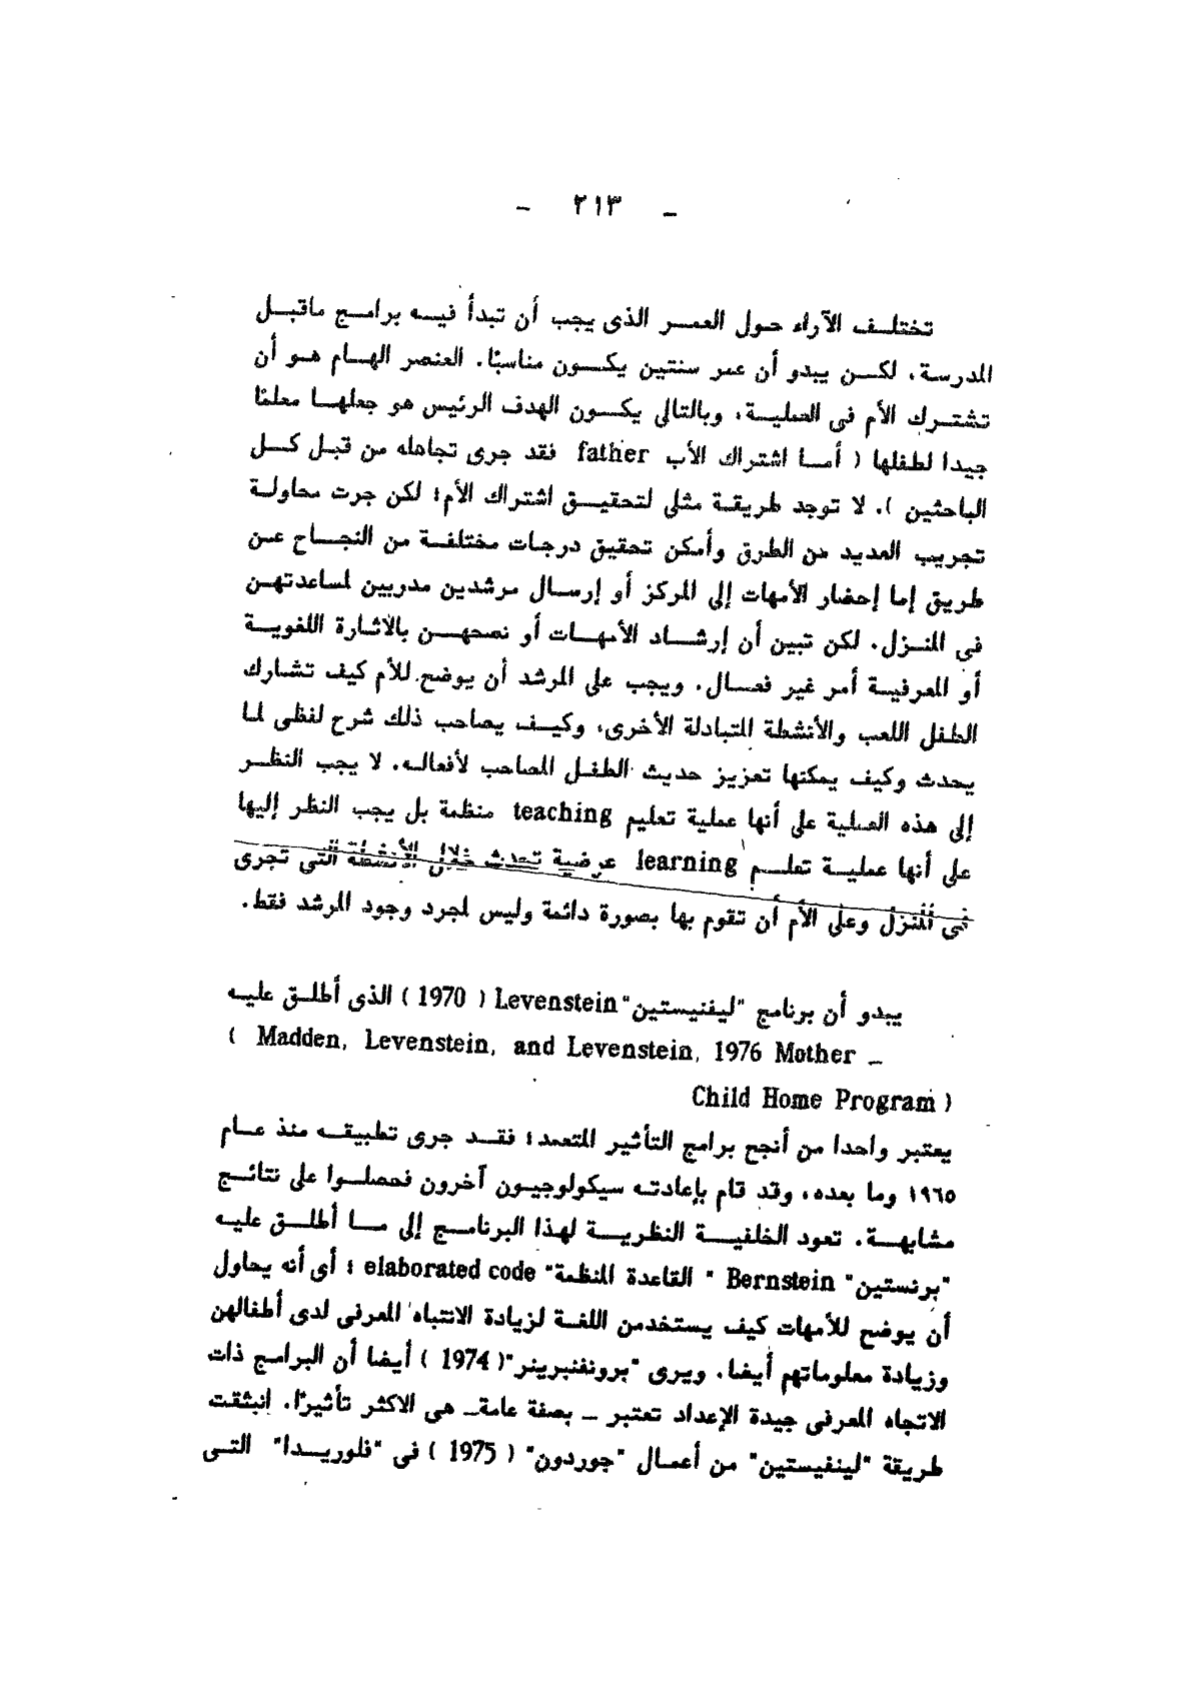 - ٢١٣ -
تختلف الآراء حول العمر الذى يجب أن تبدأ فيه برامج ماقبل
المدرسة، لكن يبدو أن عمر سنتين يكون مناسبًا. العنصر الهام هو أن
تشترك الأم فى العملية، وبالتالى يكون الهدف الرئيس هو جعلها معلمًا
جيدا لطفلها ( أما اشتراك الأب father فقد جرى تجاهله من قبل كل
الباحثين ). لا توجد طريقة مثلى لتحقيق اشتراك الأم؛ لكن جرت محاولة
تجريب العديد من الطرق وأمكن تحقيق درجات مختلفة من النجاح عن
طريق إما إحضار الأمهات إلى المركز أو إرسال مرشدين مدربين لمساعدتهن
فى المنزل. لكن تبين أن إرشاد الأمهات أو نصحهن بالاثارة اللغوية
أو المعرفية أمر غير فعال. ويجب على المرشد أن يوضح للأم كيف تشارك
الطفل اللعب والأنشطة المتبادلة الأخرى، وكيف يصاحب ذلك شرح لفظى لما
يحدث وكيف يمكنها تعزيز حديث الطفل المصاحب لأفعاله. لا يجب النظر
إلى هذه العملية على أنها عملية تعليم teaching منظمة بل يجب النظر إليها
على أنها عملية تعلم learning عرضية تحدث خلال الأنشطة التى تجرى
فى المنزل وعلى الأم أن تقوم بها بصورة دائمة وليس لمجرد وجود المرشد فقط.
يبدو أن برنامج "ليفنيستين" Levenstein ( 1970 ) الذى أطلق عليه
( Madden, Levenstein, and Levenstein, 1976 Mother –
Child Home Program )
يعتبر واحدا من أنجح برامج التأثير المتعمد؛ فقد جرى تطبيقه منذ عام
١٩٦٥ وما بعده، وقد قام بإعادته سيكولوجيون آخرون فحصلوا على نتائج
مشابهة. تعود الخلفية النظرية لهذا البرنامج إلى ما أطلق عليه
"برنستين" Bernstein " القاعدة المنظمة" elaborated code ؛ أى أنه يحاول
أن يوضح للأمهات كيف يستخدمن اللغة لزيادة الانتباه المعرفى لدى أطفالهن
وزيادة معلوماتهم أيضا. ويرى "برونفنبرينر"( 1974 ) أيضا أن البرامج ذات
الاتجاه المعرفى جيدة الإعداد تعتبر – بصفة عامة– هى الاكثر تأثيرًا. انبثقت
طريقة "لينفيستين" من أعمال "جوردون" ( 1975 ) فى "فلوريدا" التى